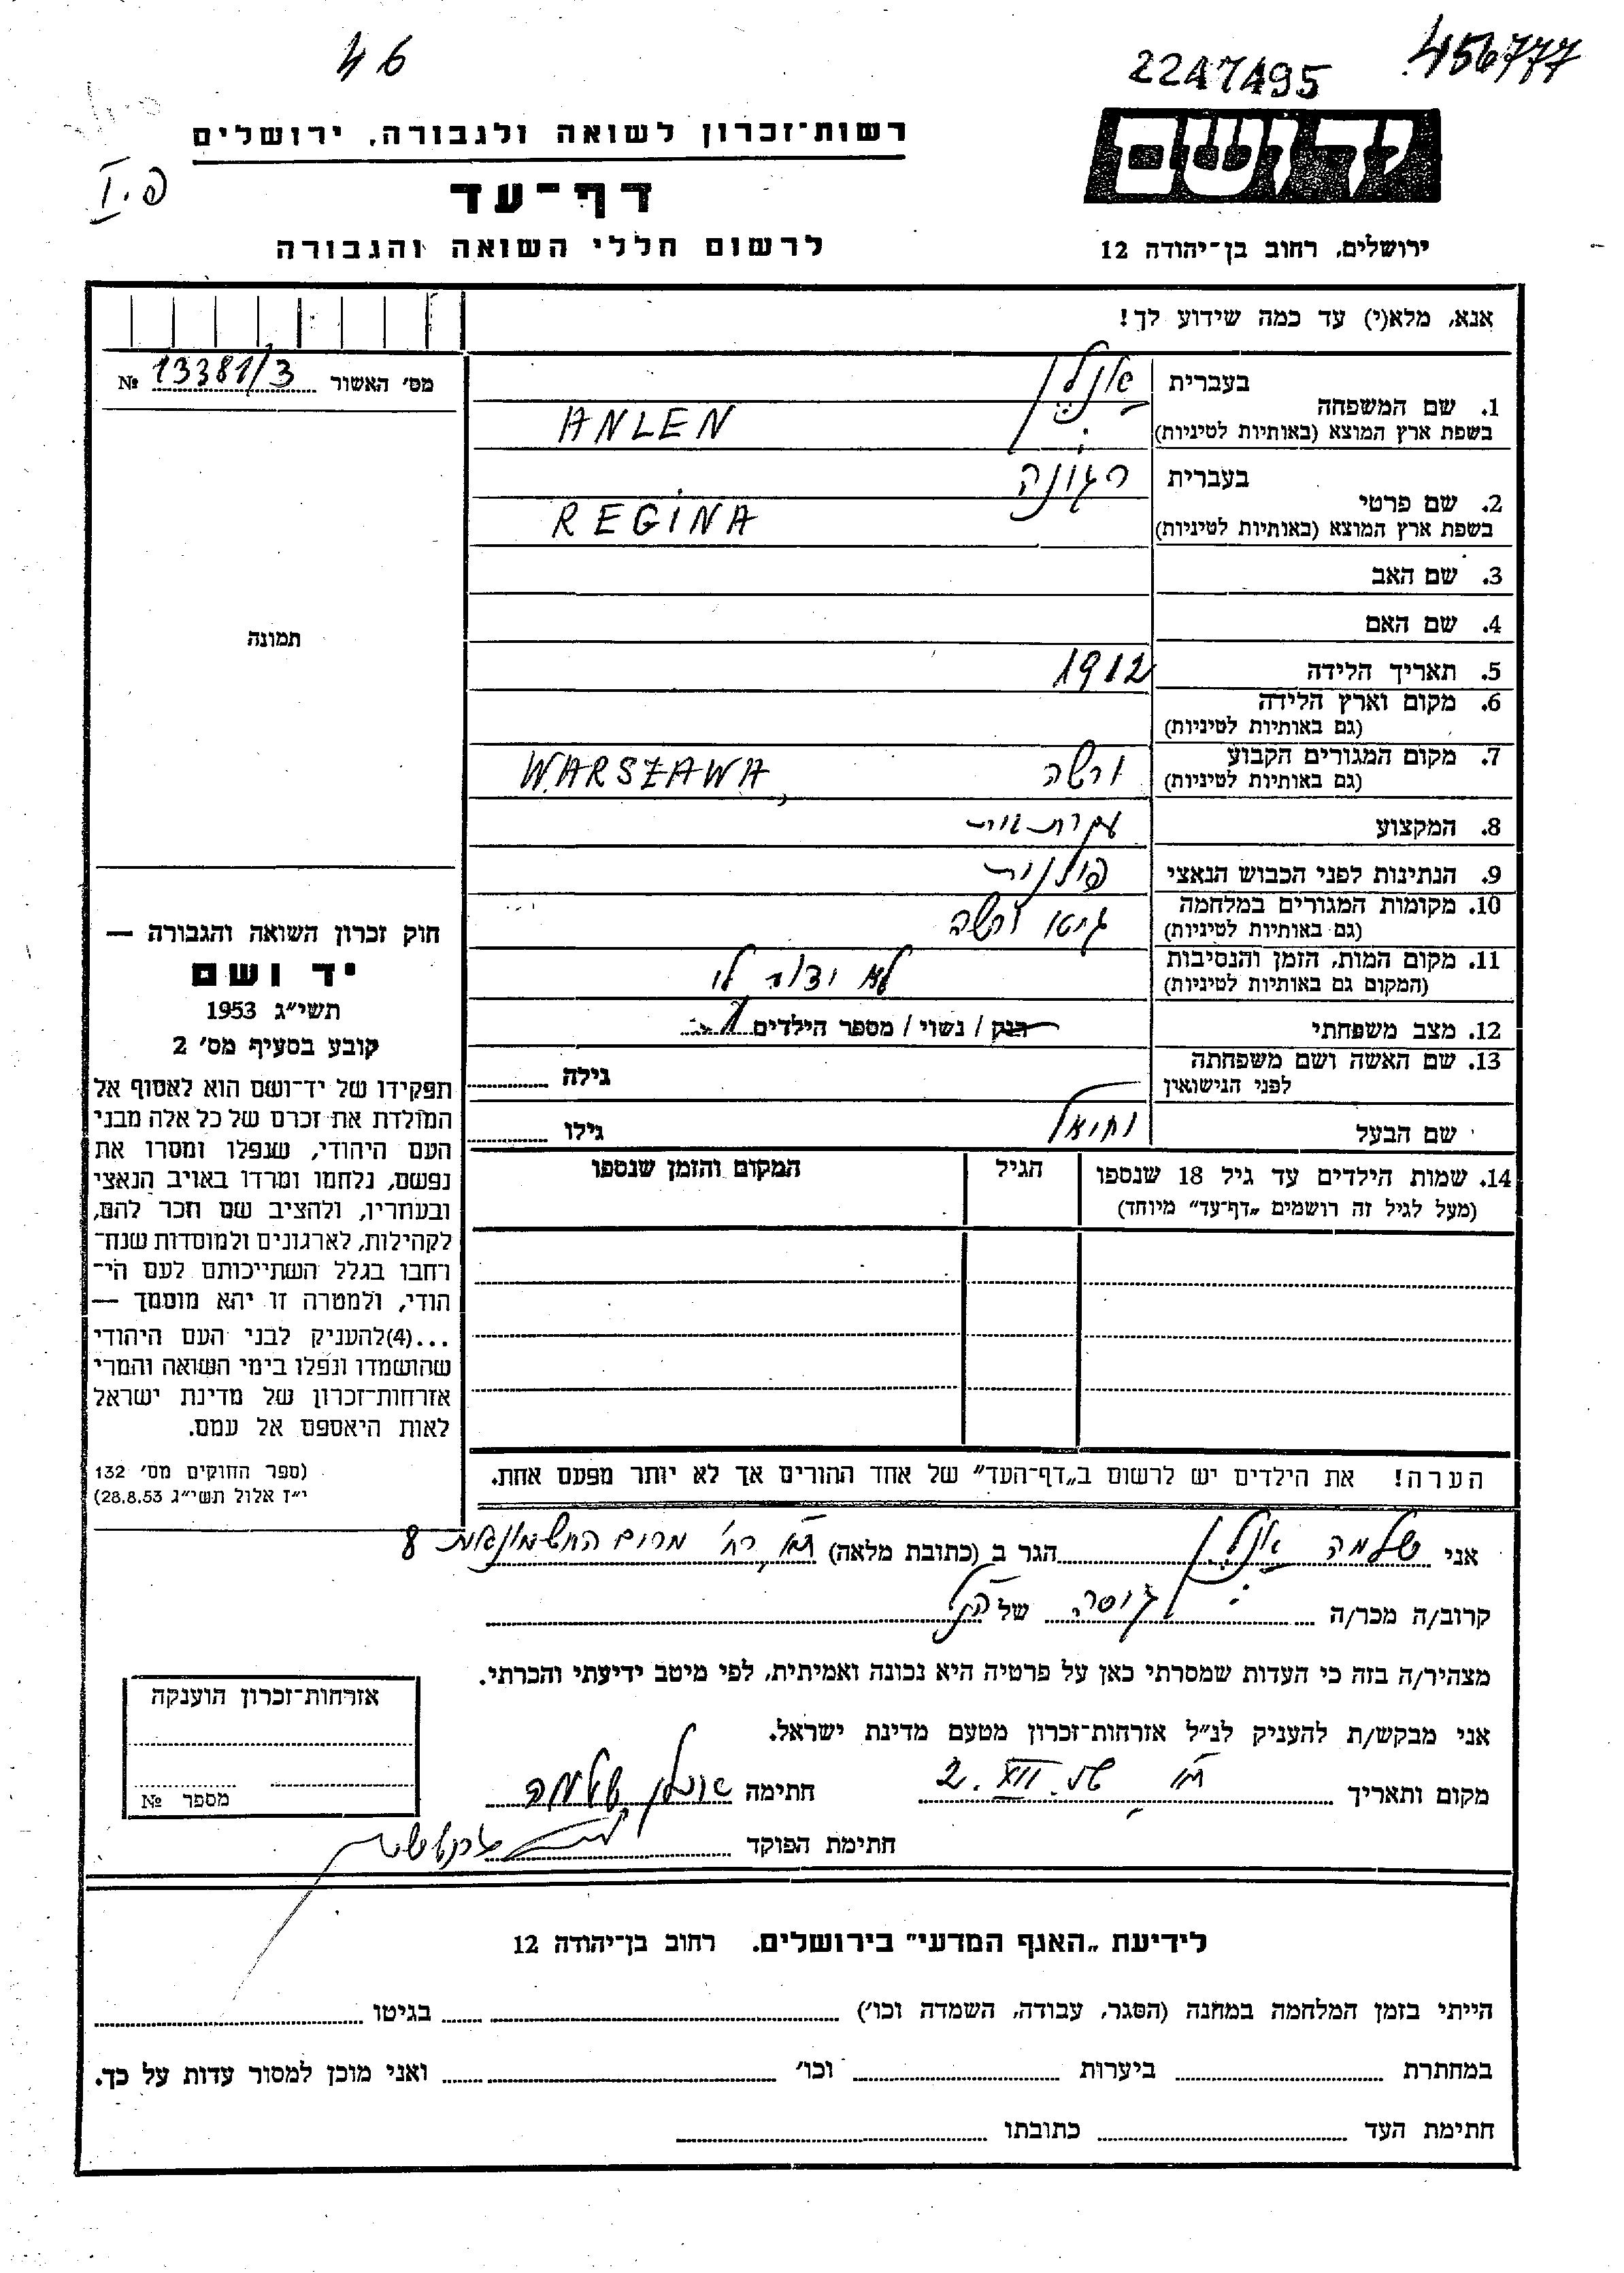 46
2247495
456777
פ.I
רשות־זכרון לשואה ולגבורה, ירושלים
דף־עד
לרשום חללי השואה והגבורה
יד ושם
ירושלים, רחוב בן־יהודה 12
אנא, מלא(י) עד כמה שידוע לך!
מס' האשור 13381/3 №
תמונה
1. שם המשפחה בעברית אנלן
בשפת ארץ המוצא (באותיות לטיניות) ANLEN
2. שם פרטי בעברית רגינה
בשפת ארץ המוצא (באותיות לטיניות) REGINA
3. שם האב
4. שם האם
5. תאריך הלידה 1912
6. מקום וארץ הלידה
(גם באותיות לטיניות)
7. מקום המגורים הקבוע ורשה WARSZAWA
(גם באותיות לטיניות)
8. המקצוע עקרת בית
9. הנתינות לפני הכבוש הנאצי פולנית
10. מקומות המגורים במלחמה גיטו ורשה
(גם באותיות לטיניות)
11. מקום המות, הזמן והנסיבות לא ידוע לי
(המקום גם באותיות לטיניות)
12. מצב משפחתי רוק / נשוי / מספר הילדים
13. שם האשה ושם משפחתה גילה
לפני הנישואין
שם הבעל גילו
14. שמות הילדים עד גיל 18 שנספו
(מעל לגיל זה רושמים „דף־עד” מיוחד)
הגיל
המקום והזמן שנספו
הערה! את הילדים יש לרשום ב„דף־העד” של אחד ההורים אך לא יותר מפעם אחת.
חוק זכרון השואה והגבורה —
יד ושם
תשי״ג 1953
קובע בסעיף מס' 2
תפקידו של יד־ושם הוא לאסוף אל
המולדת את זכרם של כל אלה מבני
העם היהודי, שנפלו ומסרו את
נפשם, נלחמו ומרדו באויב הנאצי
ובעוזריו, ולהציב שם וזכר להם,
לקהילות, לארגונים ולמוסדות שנח־
רחבו בגלל השתייכותם לעם הי־
הודי, ולמטרה זו יהא מוסמך —
...(4)להעניק לבני העם היהודי
שהושמדו ונפלו בימי השואה והמרי
אזרחות־זכרון של מדינת ישראל
לאות היאספם אל עמם.
(ספר החוקים מס' 132
י״ז אלול תשי״ג 28.8.53)
אני שלמה אנלן הגר ב (כתובת מלאה) ת״א רח' מרים החשמונאית 8
קרוב/ה מכר/ה גיסה של הנ״ל
מצהיר/ה בזה כי העדות שמסרתי כאן על פרטיה היא נכונה ואמיתית, לפי מיטב ידיעתי והכרתי.
אני מבקש/ת להעניק לנ״ל אזרחות־זכרון מטעם מדינת ישראל.
מקום ותאריך ת״א 2.XII. חתימה אנלן שלמה
חתימת הפוקד
אזרחות־זכרון הוענקה
מספר №
לידיעת „האגף המדעי” בירושלים. רחוב בן־יהודה 12
הייתי בזמן המלחמה במחנה (הסגר, עבודה, השמדה וכו') בגיטו
במחתרת ביערות וכו' ואני מוכן למסור עדות על כך.
חתימת העד כתובתו